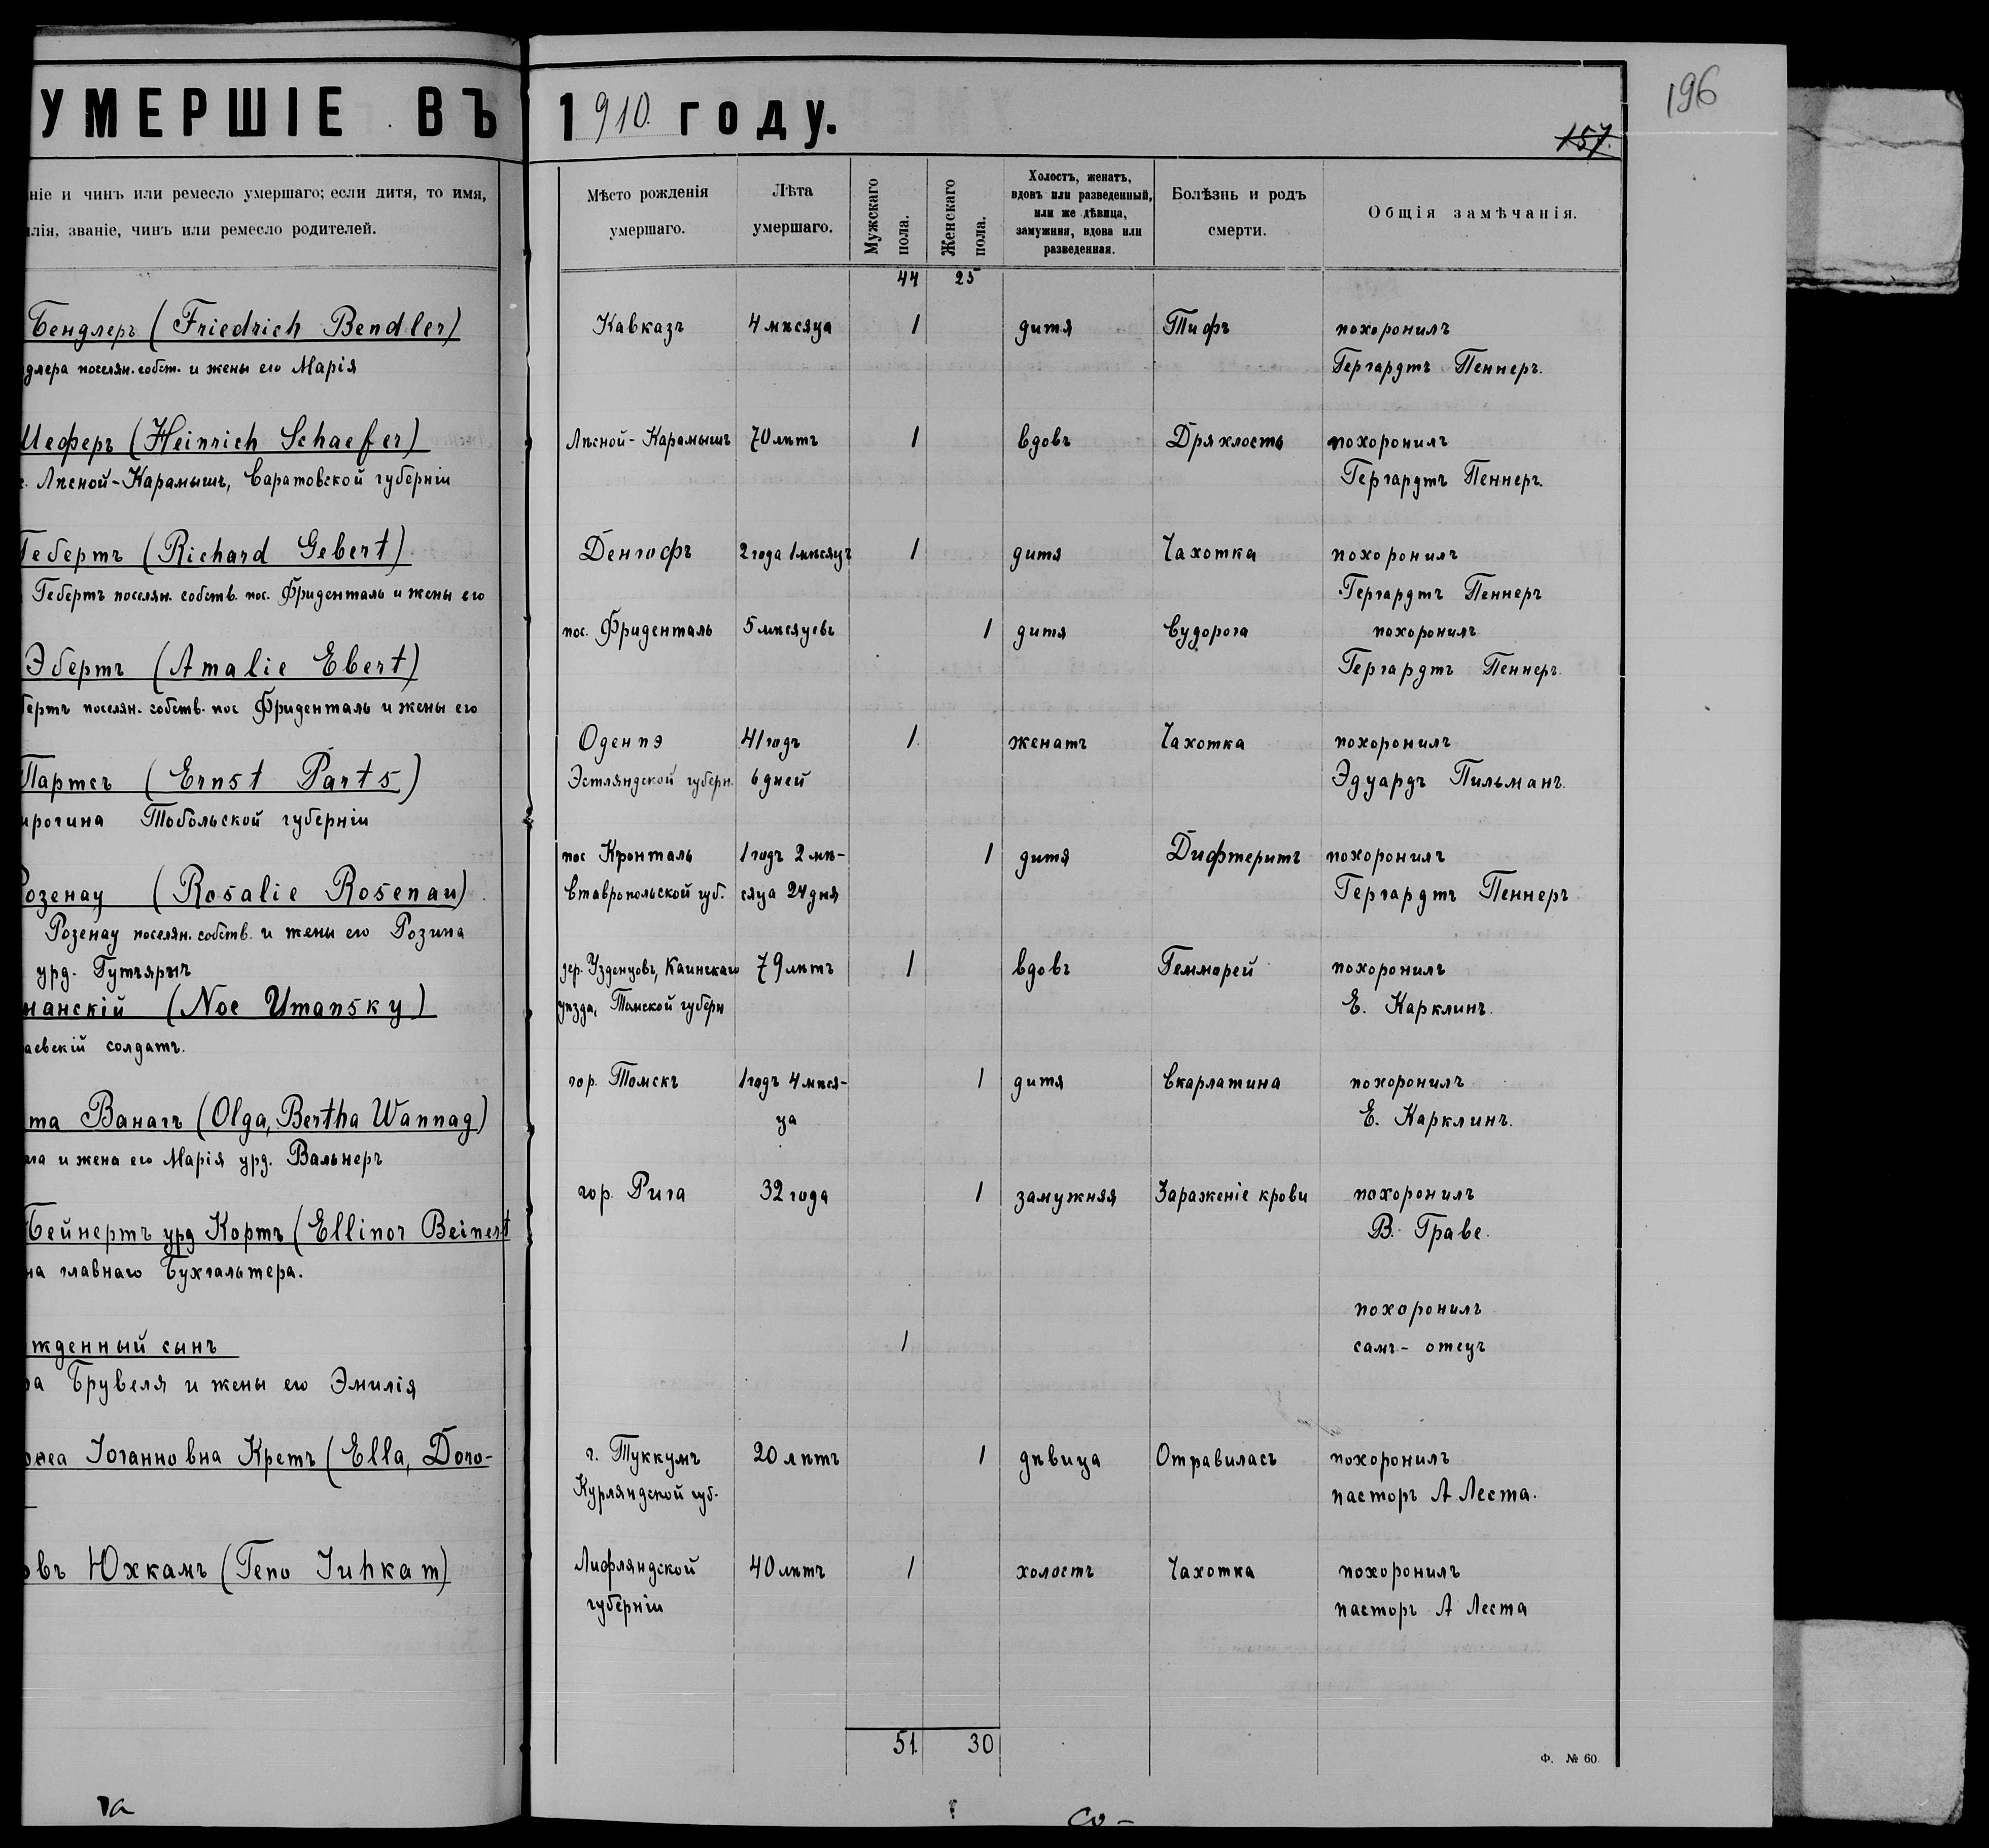 УМЕРШІЕ ВЪ 1910 году.
196
157.
ніе и чинъ или ремесло умершаго; если дитя, то имя,
лія, званіе, чинъ или ремесло родителей.
Мѣсто рожденія
умершаго.
Лѣта
умершаго.
Мужскаго
пола.
Женскаго
пола.
Холостъ, женатъ,
вдовъ или разведенный,
или же дѣвица,
замужняя, вдова или
разведенная.
Болѣзнь и родъ
смерти.
Общія замѣчанія.
44 25
Бендлеръ (Friedrich Bendler)
длера поселян. собст. и жены его Марія
Кавказъ 4 мѣсяца 1 дитя Тифъ похоронилъ
Гергардтъ Пеннеръ.
Шеферъ (Heinrich Schaefer)
с. Лѣсной-Карамышъ, Саратовской губерніи
Лѣсной-Карамышъ 70 лѣтъ 1 вдовъ Дряхлость похоронилъ
Гергардтъ Пеннеръ.
Гебертъ (Richard Gebert)
Гебертъ поселян. собств. пос. Фриденталь и жены его
Денгофъ 2 года 1 мѣсяцъ 1 дитя Чахотка похоронилъ
Гергардтъ Пеннеръ
Эбертъ (Amalie Ebert)
бертъ поселян. собств. пос Фриденталь и жены его
пос. Фриденталь 5 мѣсяцевъ 1 дитя Судорога похоронилъ
Гергардтъ Пеннеръ.
Партсъ (Ernst Parts)
ирогина Тобольской губерніи
Оденпэ 41 годъ 1 женатъ Чахотка похоронилъ
Эстляндской губерн. 6 дней Эдуардъ Пильманъ.
Розенау (Rosalie Rosenau)
Розенау поселян. собств. и жены его Розина
урд. Гутъяръ
пос Кронталь 1 годъ 2 мѣ- 1 дитя Дифтеритъ похоронилъ
Ставропольской губ. сяца 24 дня Гергардтъ Пеннеръ
манскій (Noe Umansky)
аевскій солдатъ.
дер. Узденцовъ, Каинскаго 79 лѣтъ 1 вдовъ Геммарей похоронилъ
уѣзда, Томской губерн Е. Карклинъ.
та Ванагъ (Olga, Bertha Wannag)
ага и жена его Марія урд. Вальнеръ
гор. Томскъ 1 годъ 4 мѣся- 1 дитя Скарлатина похоронилъ
ца Е. Карклинъ.
Бейнертъ урд Кортъ (Ellinor Beinert
на главнаго Бухгальтера.
гор. Рига 32 года 1 замужняя Зараженіе крови похоронилъ
В. Граве.
жденный сынъ
ра Брувеля и жены его Эмилія
похоронилъ
1 самъ-отецъ
ѳеа Іоганновна Кретъ (Ella, Doro-
г. Туккумъ 20 лѣтъ 1 дѣвица Отравилась похоронилъ
Курляндской губ. пасторъ А Леста.
овъ Юхкамъ (Teno Juhkam)
Лифляндской 40 лѣтъ 1 холостъ Чахотка похоронилъ
губерніи пасторъ А Леста
51 30
Ф. № 60